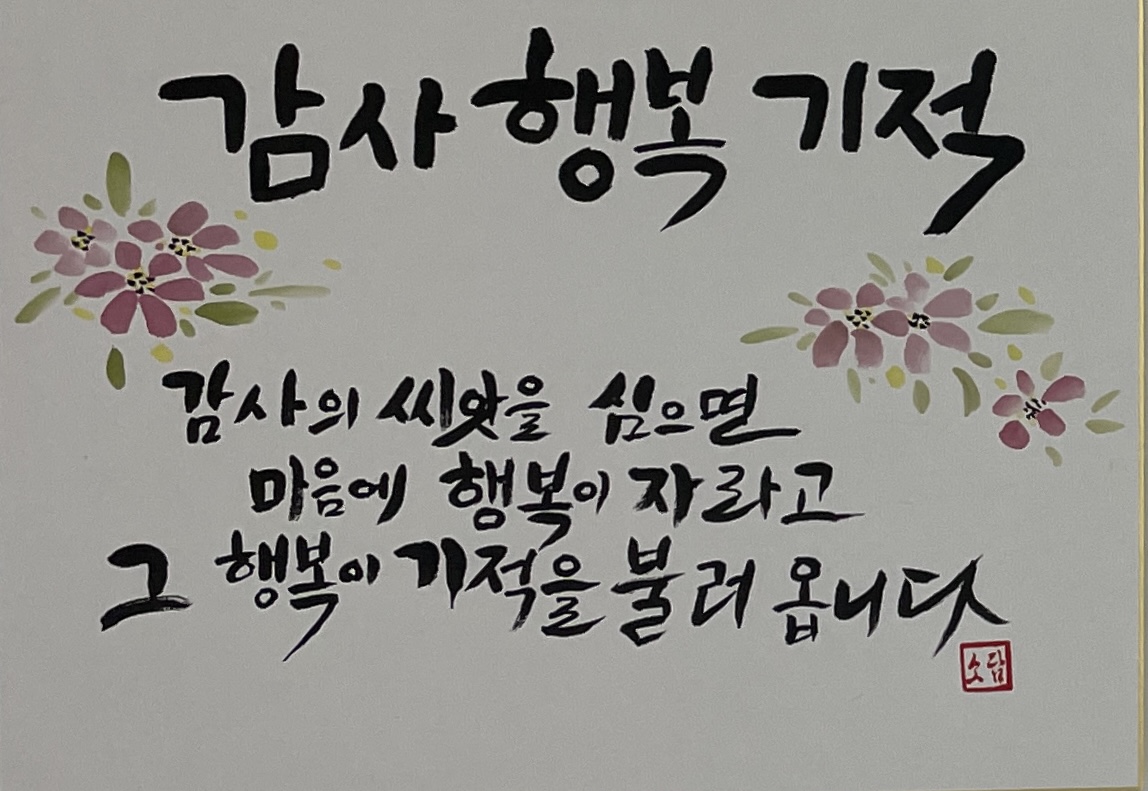 감사 행복 기적
감사의 씨앗을 심으면
마음에 행복이 자라고
그 행복이 기적을 불러 옵니다
소담